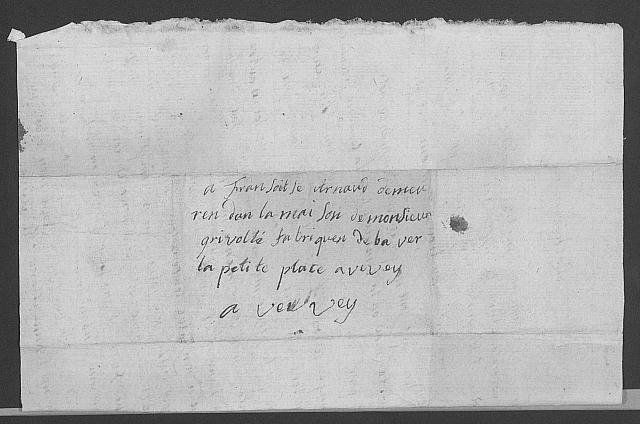 a fransoitse Arnaud demeu
ren dan la mai son de monsieur
grivolté fabriquen de ba ver
la petite place a vevey
a vevey